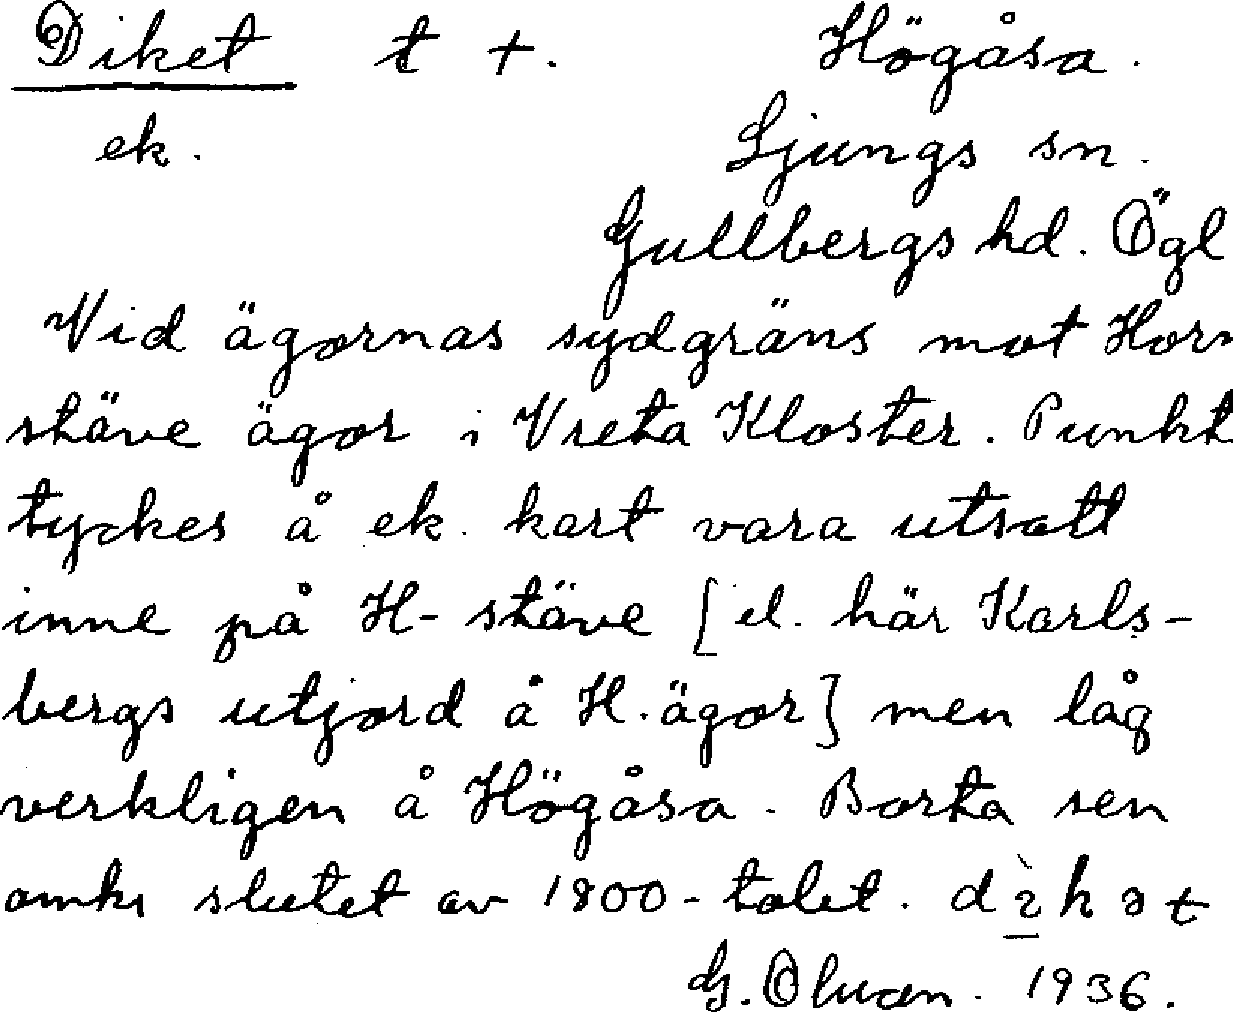 Diket t +. Högåsa.
ek. Ljungs sn.
Gullbergs hd. Ögl
Vid ägornas sydgräns mot Horn
stäve ägor i Vreta Kloster. Punkt
tyckes å ek. kart vara utsatt
inne på H-stäve [el. här Karls-
bergs utjord å H. ägor] men låg
verkligen å Högåsa. Borta sen
omkr slutet av 1800-talet.
G. 1936.